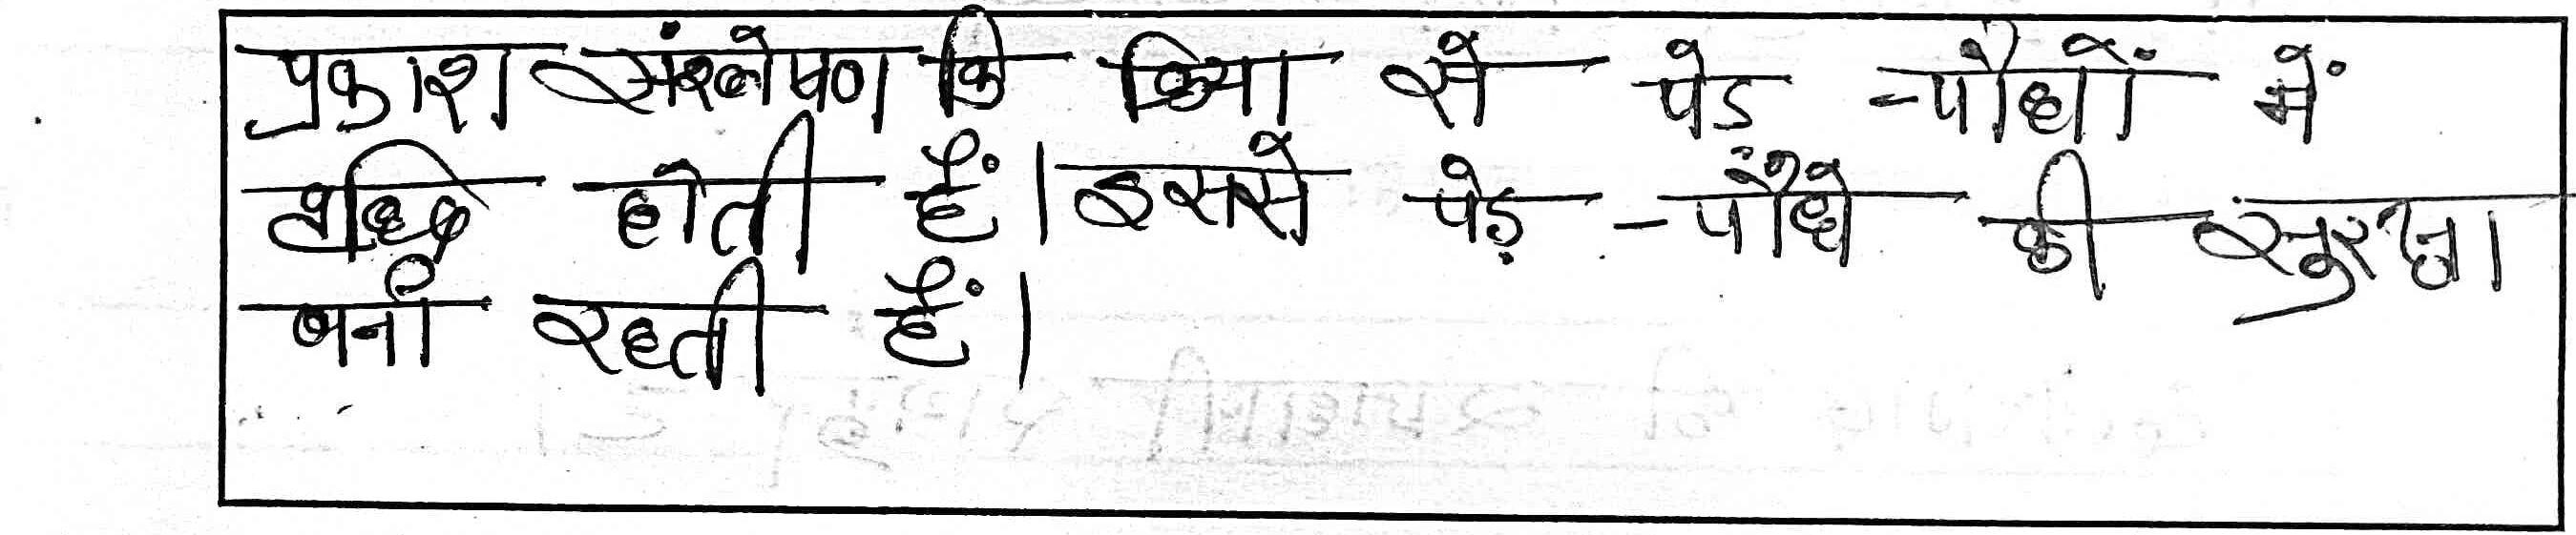 प्रकाश संश्लेषण कि क्रिया से पेड -पौधों में
वृध्दि होती हैं। इससे पेड़ -पौधे की सुरक्षा
बनी रहती हैं।